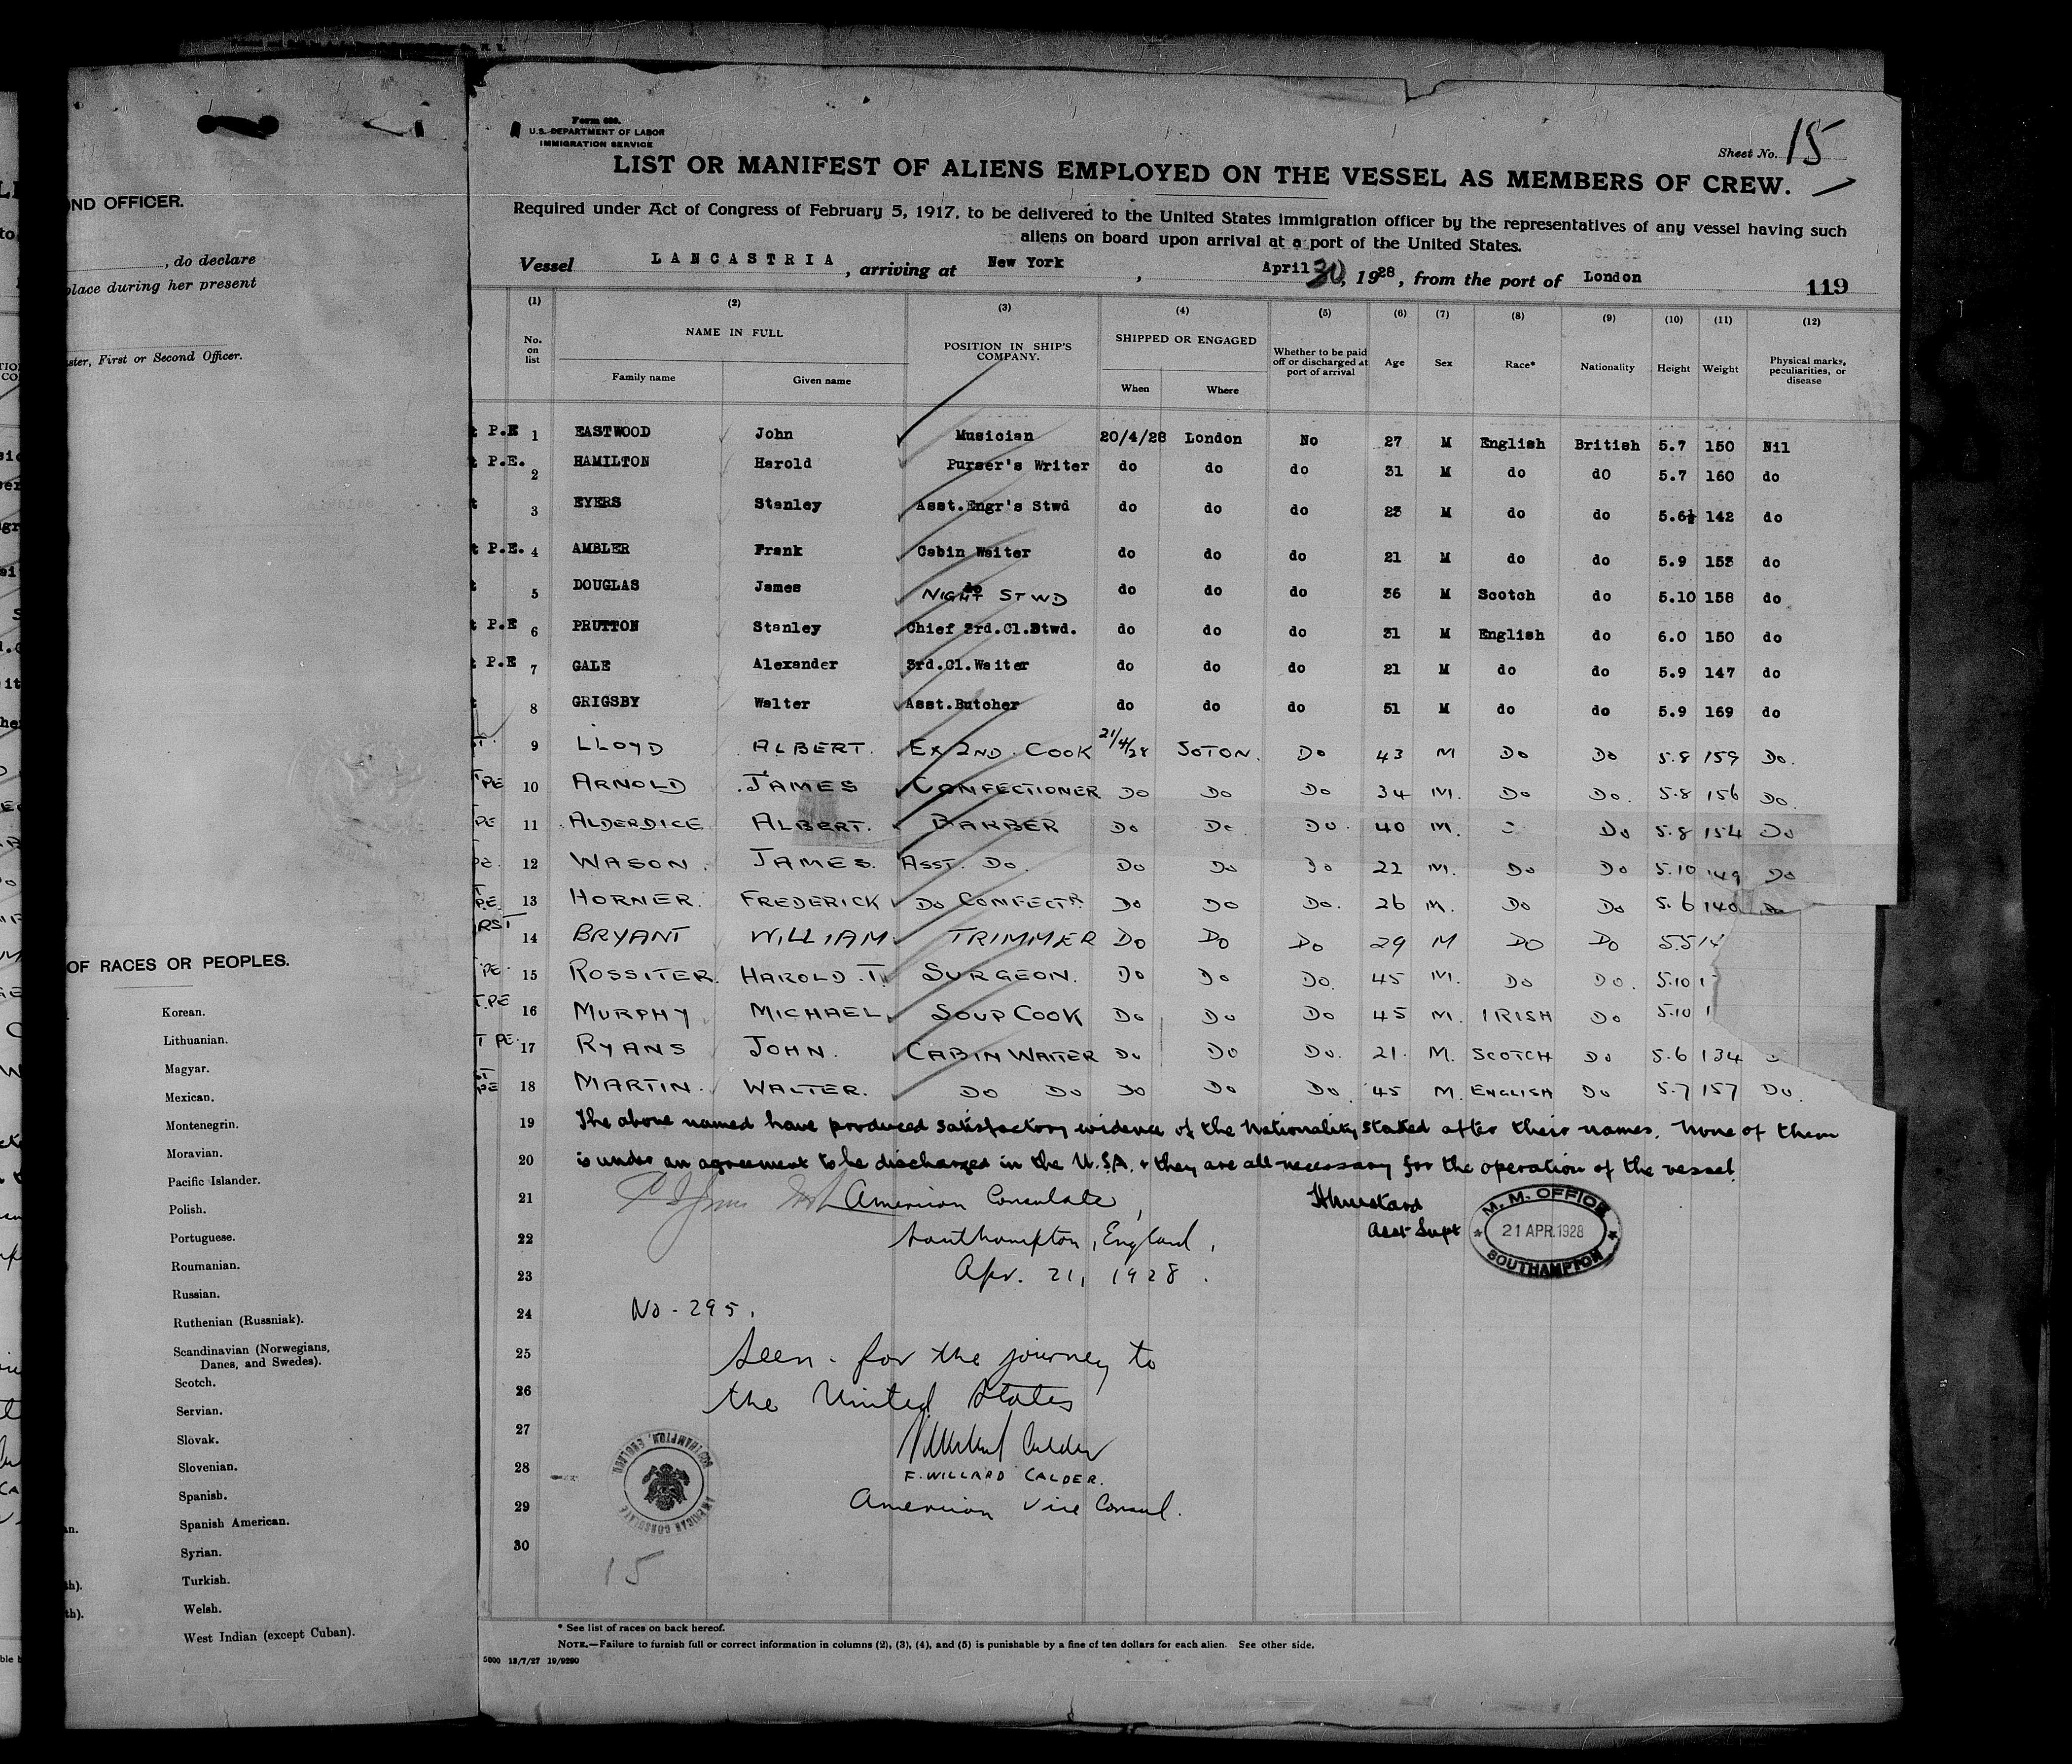 ND OFFICER.
, do declare
place during her present
ster, First or Second Officer.
OF RACES OR PEOPLES.
Korean.
Lithuanian.
Magyar.
Mexican.
Montenegrin.
Moravian.
Pacific Islander.
Polish.
Portuguese.
Roumanian.
Russian.
Ruthenian (Russniak).
Scandinavian (Norwegians,
Danes, and Swedes).
Scotch.
Servian.
Slovak.
Slovenian.
Spanish.
Spanish American.
Syrian.
Turkish.
Welsh.
West Indian (except Cuban).
U.S. DEPARTMENT OF LABOR
IMMIGRATION SERVICE
Sheet No. 15
LIST OR MANIFEST OF ALIENS EMPLOYED ON THE VESSEL AS MEMBERS OF CREW.
Required under Act of Congress of February 5, 1917, to be delivered to the United States immigration officer by the representatives of any vessel having such
aliens on board upon arrival at a port of the United States.
Vessel LANCASTRIA, arriving at New York, April 30, 1928, from the port of London
119
(1) (2) (3) (4) (5) (6) (7) (8) (9) (10) (11) (12)
No. on list NAME IN FULL POSITION IN SHIP'S COMPANY. SHIPPED OR ENGAGED Whether to be paid off or discharged at port of arrival Age Sex Race* Nationality Height Weight Physical marks, peculiarities, or disease
Family name Given name When Where
P.E 1 EASTWOOD John Musician 20/4/28 London No 27 M English British 5.7 150 Nil
P.E. 2 HAMILTON Harold Purser's Writer do do do 31 M do do 5.7 160 do
3 EYERS Stanley Asst.Engr's Stwd do do do 23 M do do 5.6½ 142 do
P.E. 4 AMBLER Frank Cabin Waiter do do do 21 M do do 5.9 153 do
5 DOUGLAS James do NIGHT STWD do do do 36 M Scotch do 5.10 158 do
P.E 6 PRUTTON Stanley Chief 3rd.Cl.Stwd. do do do 31 M English do 6.0 150 do
P.E 7 GALE Alexander 3rd.Cl.Waiter do do do 21 M do do 5.9 147 do
8 GRIGSBY Walter Asst.Butcher do do do 51 M do do 5.9 169 do
9 LLOYD ALBERT. EX 2ND COOK 21/4/28 SOTON. Do 43 M Do Do 5.8 159 Do.
PE 10 ARNOLD JAMES CONFECTIONER Do Do Do 34 M. Do Do. 5.8 156 Do.
PE 11 ALDERDICE ALBERT. BARBER Do Do Do. 40 M. Do 5.8 154 Do
PE. 12 WASON. JAMES. ASST. Do. Do Do Do 22 M. Do Do 5.10 149 Do
PE. 13 HORNER. FREDERICK Do CONFECTR Do Do Do. 26 M. Do Do 5.6 140 Do
RST 14 BRYANT WILLIAM TRIMMER Do Do Do 29 M Do Do 5.5 14
PE. 15 ROSSITER. HAROLD.T. SURGEON. Do Do Do. 45 M. Do Do. 5.10 1
T.PE 16 MURPHY MICHAEL. SOUP COOK Do Do Do 45 M. IRISH Do 5.10 1
T PE. 17 RYANS JOHN. CABIN WAITER Do Do Do. 21. M. SCOTCH Do 5.6 134
ST PE 18 MARTIN. WALTER. Do Do Do Do Do. 45 M. ENGLISH Do 5.7 157 Do.
19 The above named have produced satisfactory evidence of the Nationality stated after their names. None of them
20 is under an agreement to be discharged in the U.S.A. & they are all necessary for the operation of the vessel.
21 American Consulate,
22 Southampton, England,
Asst Supt
M. M. OFFICE
21 APR. 1928
SOUTHAMPTON
23 Apr. 21, 1928.
24 No - 295.
25 Seen - for the journey to
26 the United States
27 F Willard Calder
28 F. WILLARD CALDER.
29 American Vice Consul.
AMERICAN CONSULATE
SOUTHAMPTON, ENGLAND
30
15
* See list of races on back hereof.
NOTE.—Failure to furnish full or correct information in columns (2), (3), (4), and (5) is punishable by a fine of ten dollars for each alien. See other side.
5000 13/7/27 19/9290